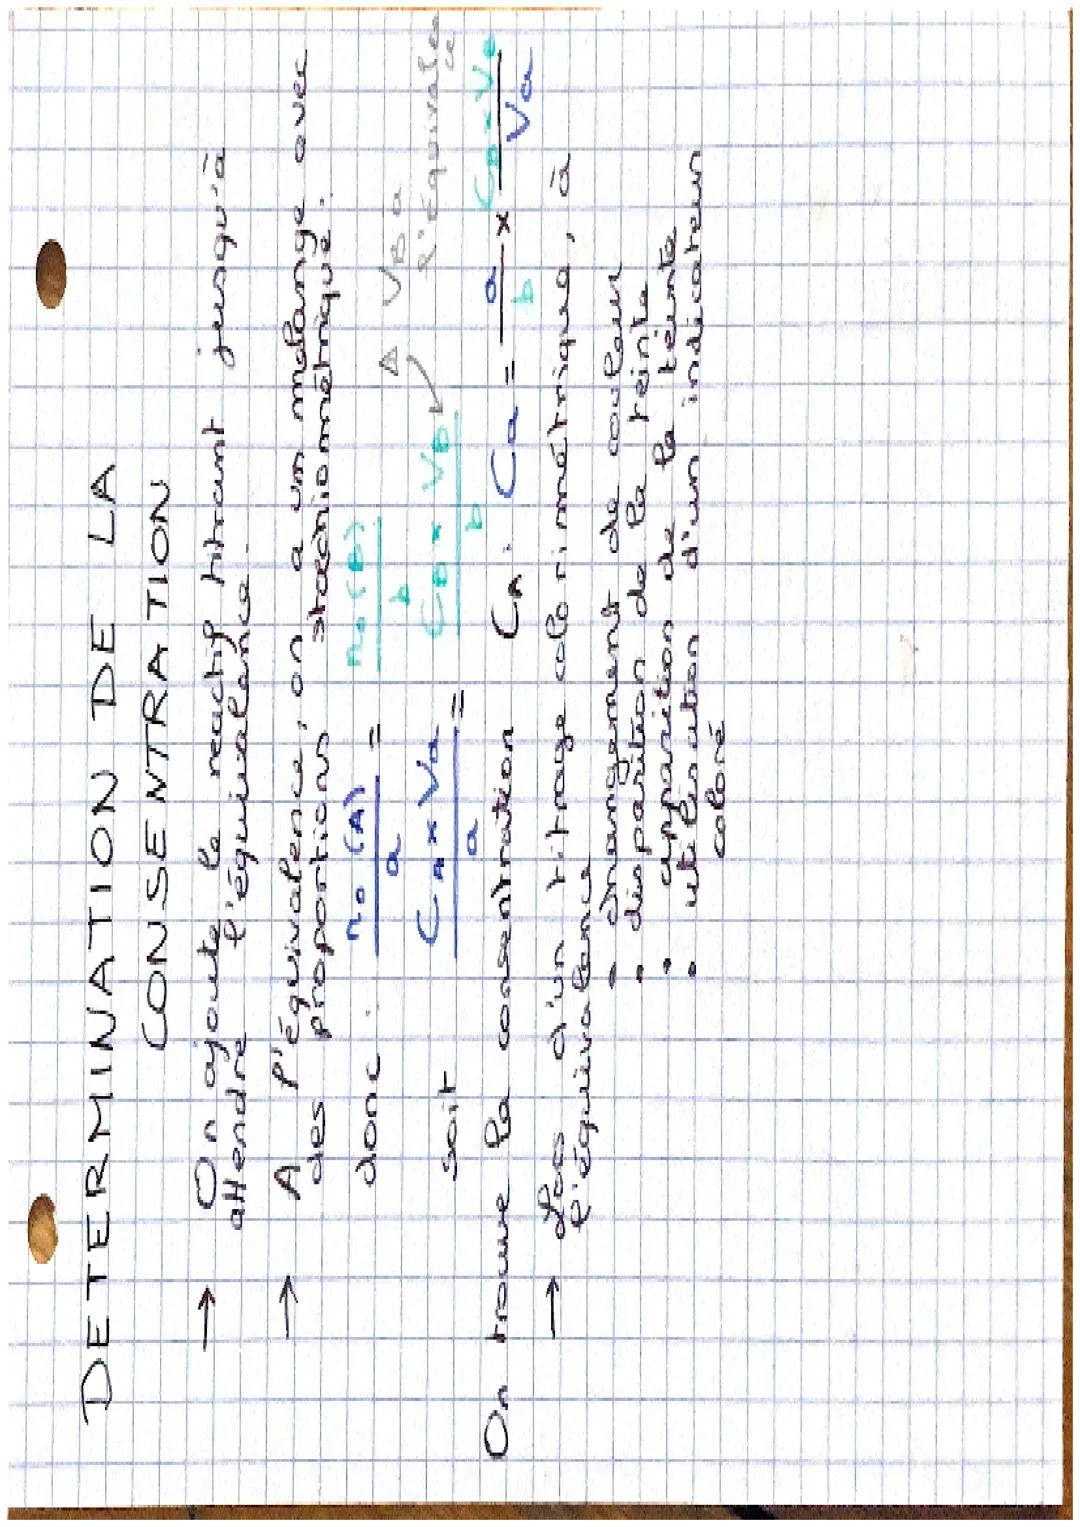 DETERMINATION DE LA
CONSENTRATION
→ On ajoute le reactif titrant jusqu'à
attendre l'équivalance.
→ A l'équivalence, on a un mélange avec
des proportions stœchiométrique.
donc : n₀(A)/a = n₀(B)/b
⚠ VB à l'équivalence
soit CA x Va/a = CB x VB/b
On trouve la consentration CA : Ca = a/b x CB x Ve/Va
→ Lors d'un titrage colorimétrique, à
l'équivalance
• changement de couleur
• disparition de la teinte
• apparition de la teinte
• utilisation d'un indicateur
coloré